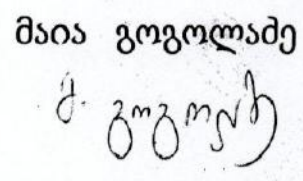 მაია გოგოლაძე
მ. გოგოლაძე